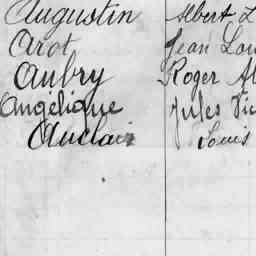 Augustin Albert L
Arot Jean Lou
Aubry Roger Al
Angélique Jules Vic
Auclair Louis